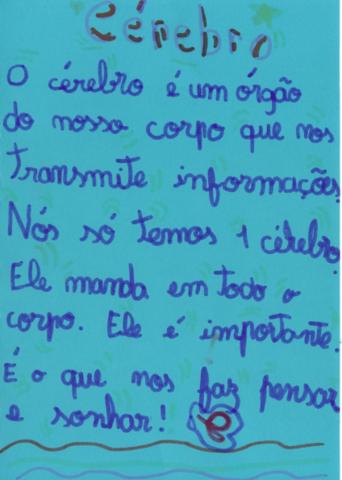 Cérebro
O cérebro é um órgão
do nosso corpo que nos
transmite informações.
Nós só temos 1 cérebro.
Ele manda em todo o
corpo. Ele é importante.
É o que nos faz pensar
e sonhar!